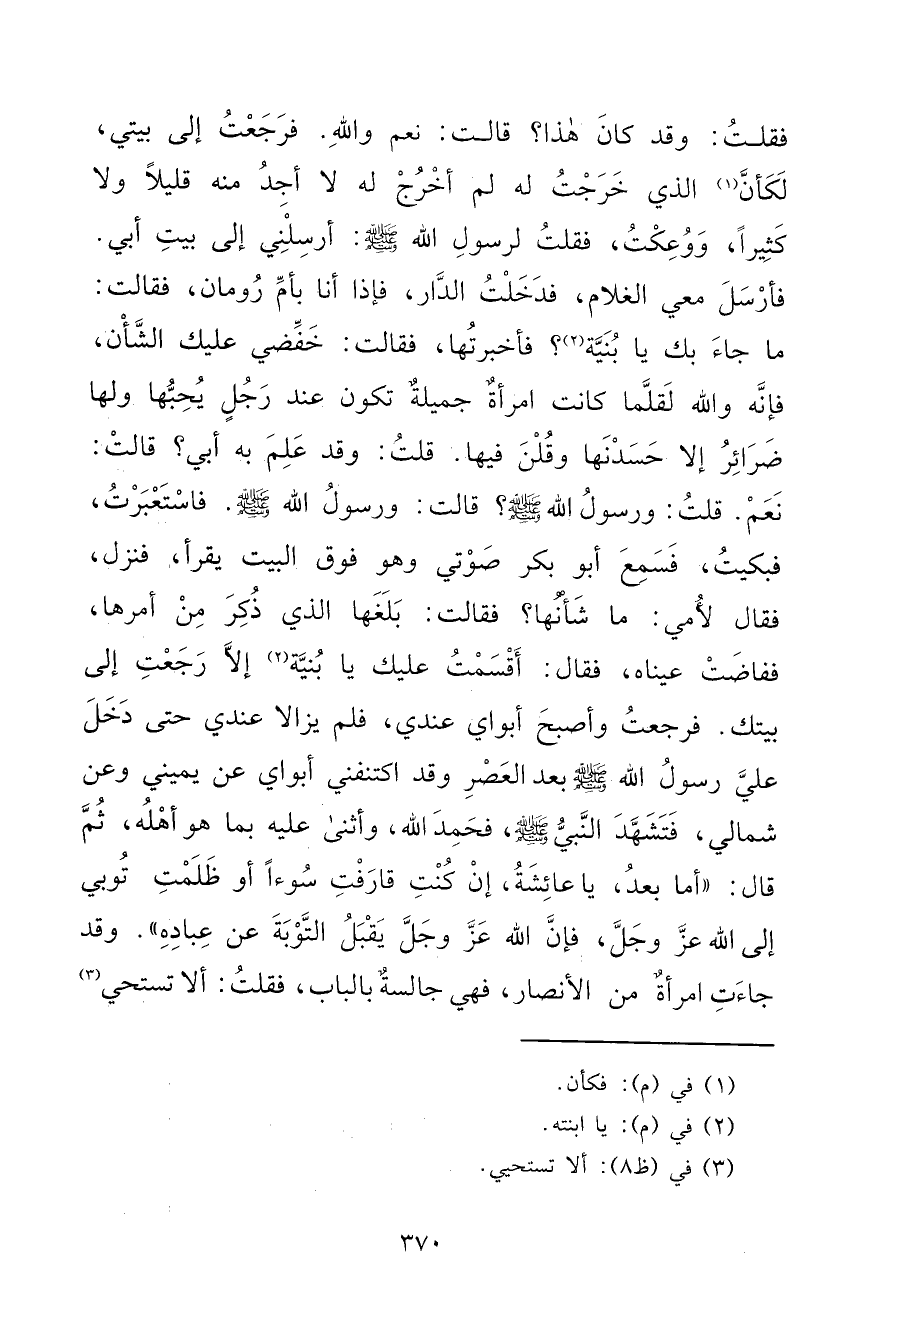 فقلـتُ: وقد كانَ هٰذا؟ قالـت: نعم واللهِ. فرَجَعْتُ إلى بيتي،
لَكَأنَّ(١) الذي خَرَجْتُ له لم أخْرُجْ له لا أجِدُ منه قليلاً ولا
كَثِيراً، وَوُعِكْتُ، فقلتُ لرسولِ الله ﷺ: أرسِلْنِي إلى بيتِ أبي.
فأرْسَلَ معي الغلام، فدَخَلْتُ الدَّار، فإذا أنا بأمِّ رُومان، فقالت:
ما جاءَ بك يا بُنَيَّة(٢)؟ فأخبرتُها، فقالت: خَفِّضي عليك الشَّأْن،
فإنَّه والله لَقلَّما كانت امرأةٌ جميلةٌ تكون عند رَجُلٍ يُحِبُّها ولها
ضَرَائِرُ إلا حَسَدْنَها وقُلْنَ فيها. قلتُ: وقد عَلِمَ به أبي؟ قالتْ:
نَعَمْ. قلتُ: ورسولُ الله ﷺ؟ قالت: ورسولُ الله ﷺ. فاسْتَعْبَرْتُ،
فبكيتُ، فَسَمِعَ أبو بكر صَوْتي وهو فوق البيت يقرأ، فنزل،
فقال لأُمي: ما شَأنُها؟ فقالت: بَلَغَها الذي ذُكِرَ مِنْ أمرها،
ففاضَتْ عيناه، فقال: أَقْسَمْتُ عليك يا بُنيَّة(٢) إلاَّ رَجَعْتِ إلى
بيتك. فرجعتُ وأصبحَ أبواي عندي، فلم يزالا عندي حتى دَخَلَ
عليَّ رسولُ الله ﷺ بعد العَصْرِ وقد اكتنفني أبواي عن يميني وعن
شمالي، فَتَشَهَّدَ النَّبيُّ ﷺ، فحَمِدَ الله، وأثنىٰ عليه بما هو أهْلُه، ثُمَّ
قال: «أما بعدُ، يا عائِشَةُ، إنْ كُنْتِ قارَفْتِ سُوءاً أو ظَلَمْتِ تُوبي
إلى الله عزَّ وجَلَّ، فإنَّ الله عَزَّ وجَلَّ يَقْبَلُ التَّوْبَةَ عن عِبادِهِ». وقد
جاءَتِ امرأةٌ من الأنصار، فهي جالسةٌ بالباب، فقلتُ: ألا تستحي(٣)
(١) في (م): فكأن.
(٢) في (م): يا ابنته.
(٣) في (ظ٨): ألا تستحيي.
٣٧٠